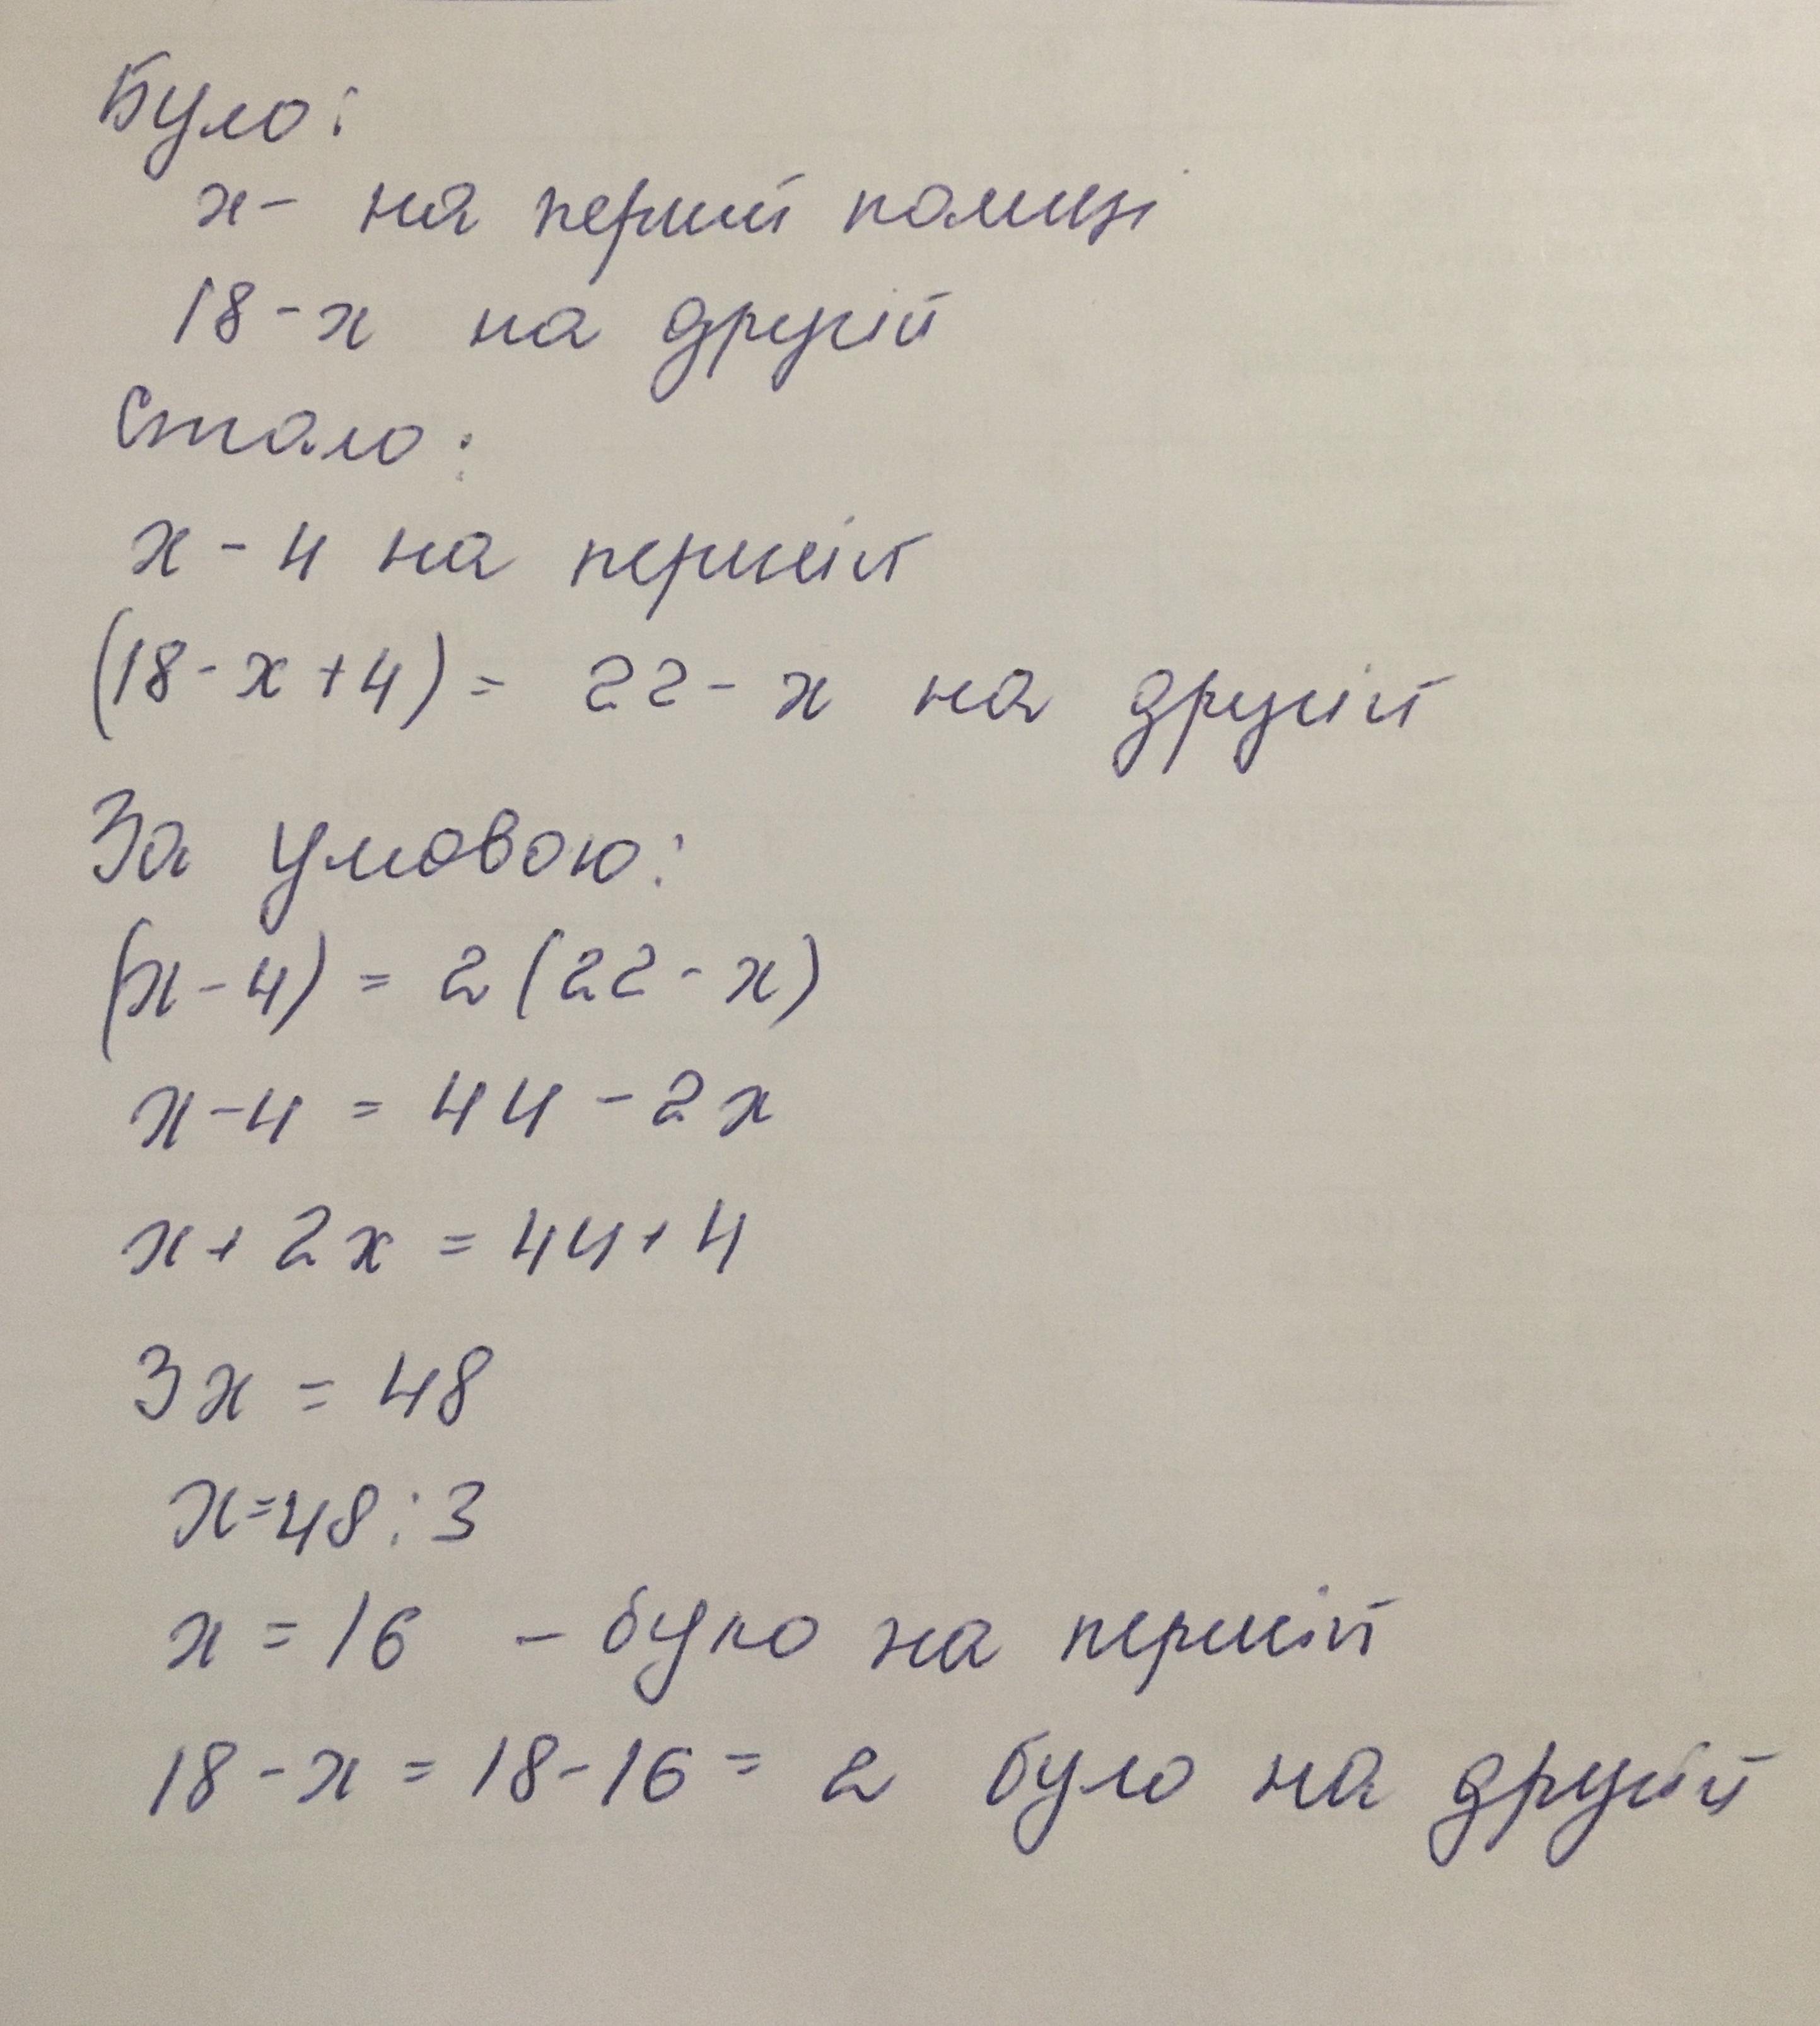 Було:
х - на перший полиці
18 - х на другій
Стало:
х - 4 на першій
(18 - х + 4) = 22 - х на другій
За умовою:
(х - 4) = 2 (22 - х)
х - 4 = 44 - 2х
х + 2х = 44 + 4
3х = 48
х = 48 : 3
х = 16 - було на першій
18 - х = 18 - 16 = 2 було на другій